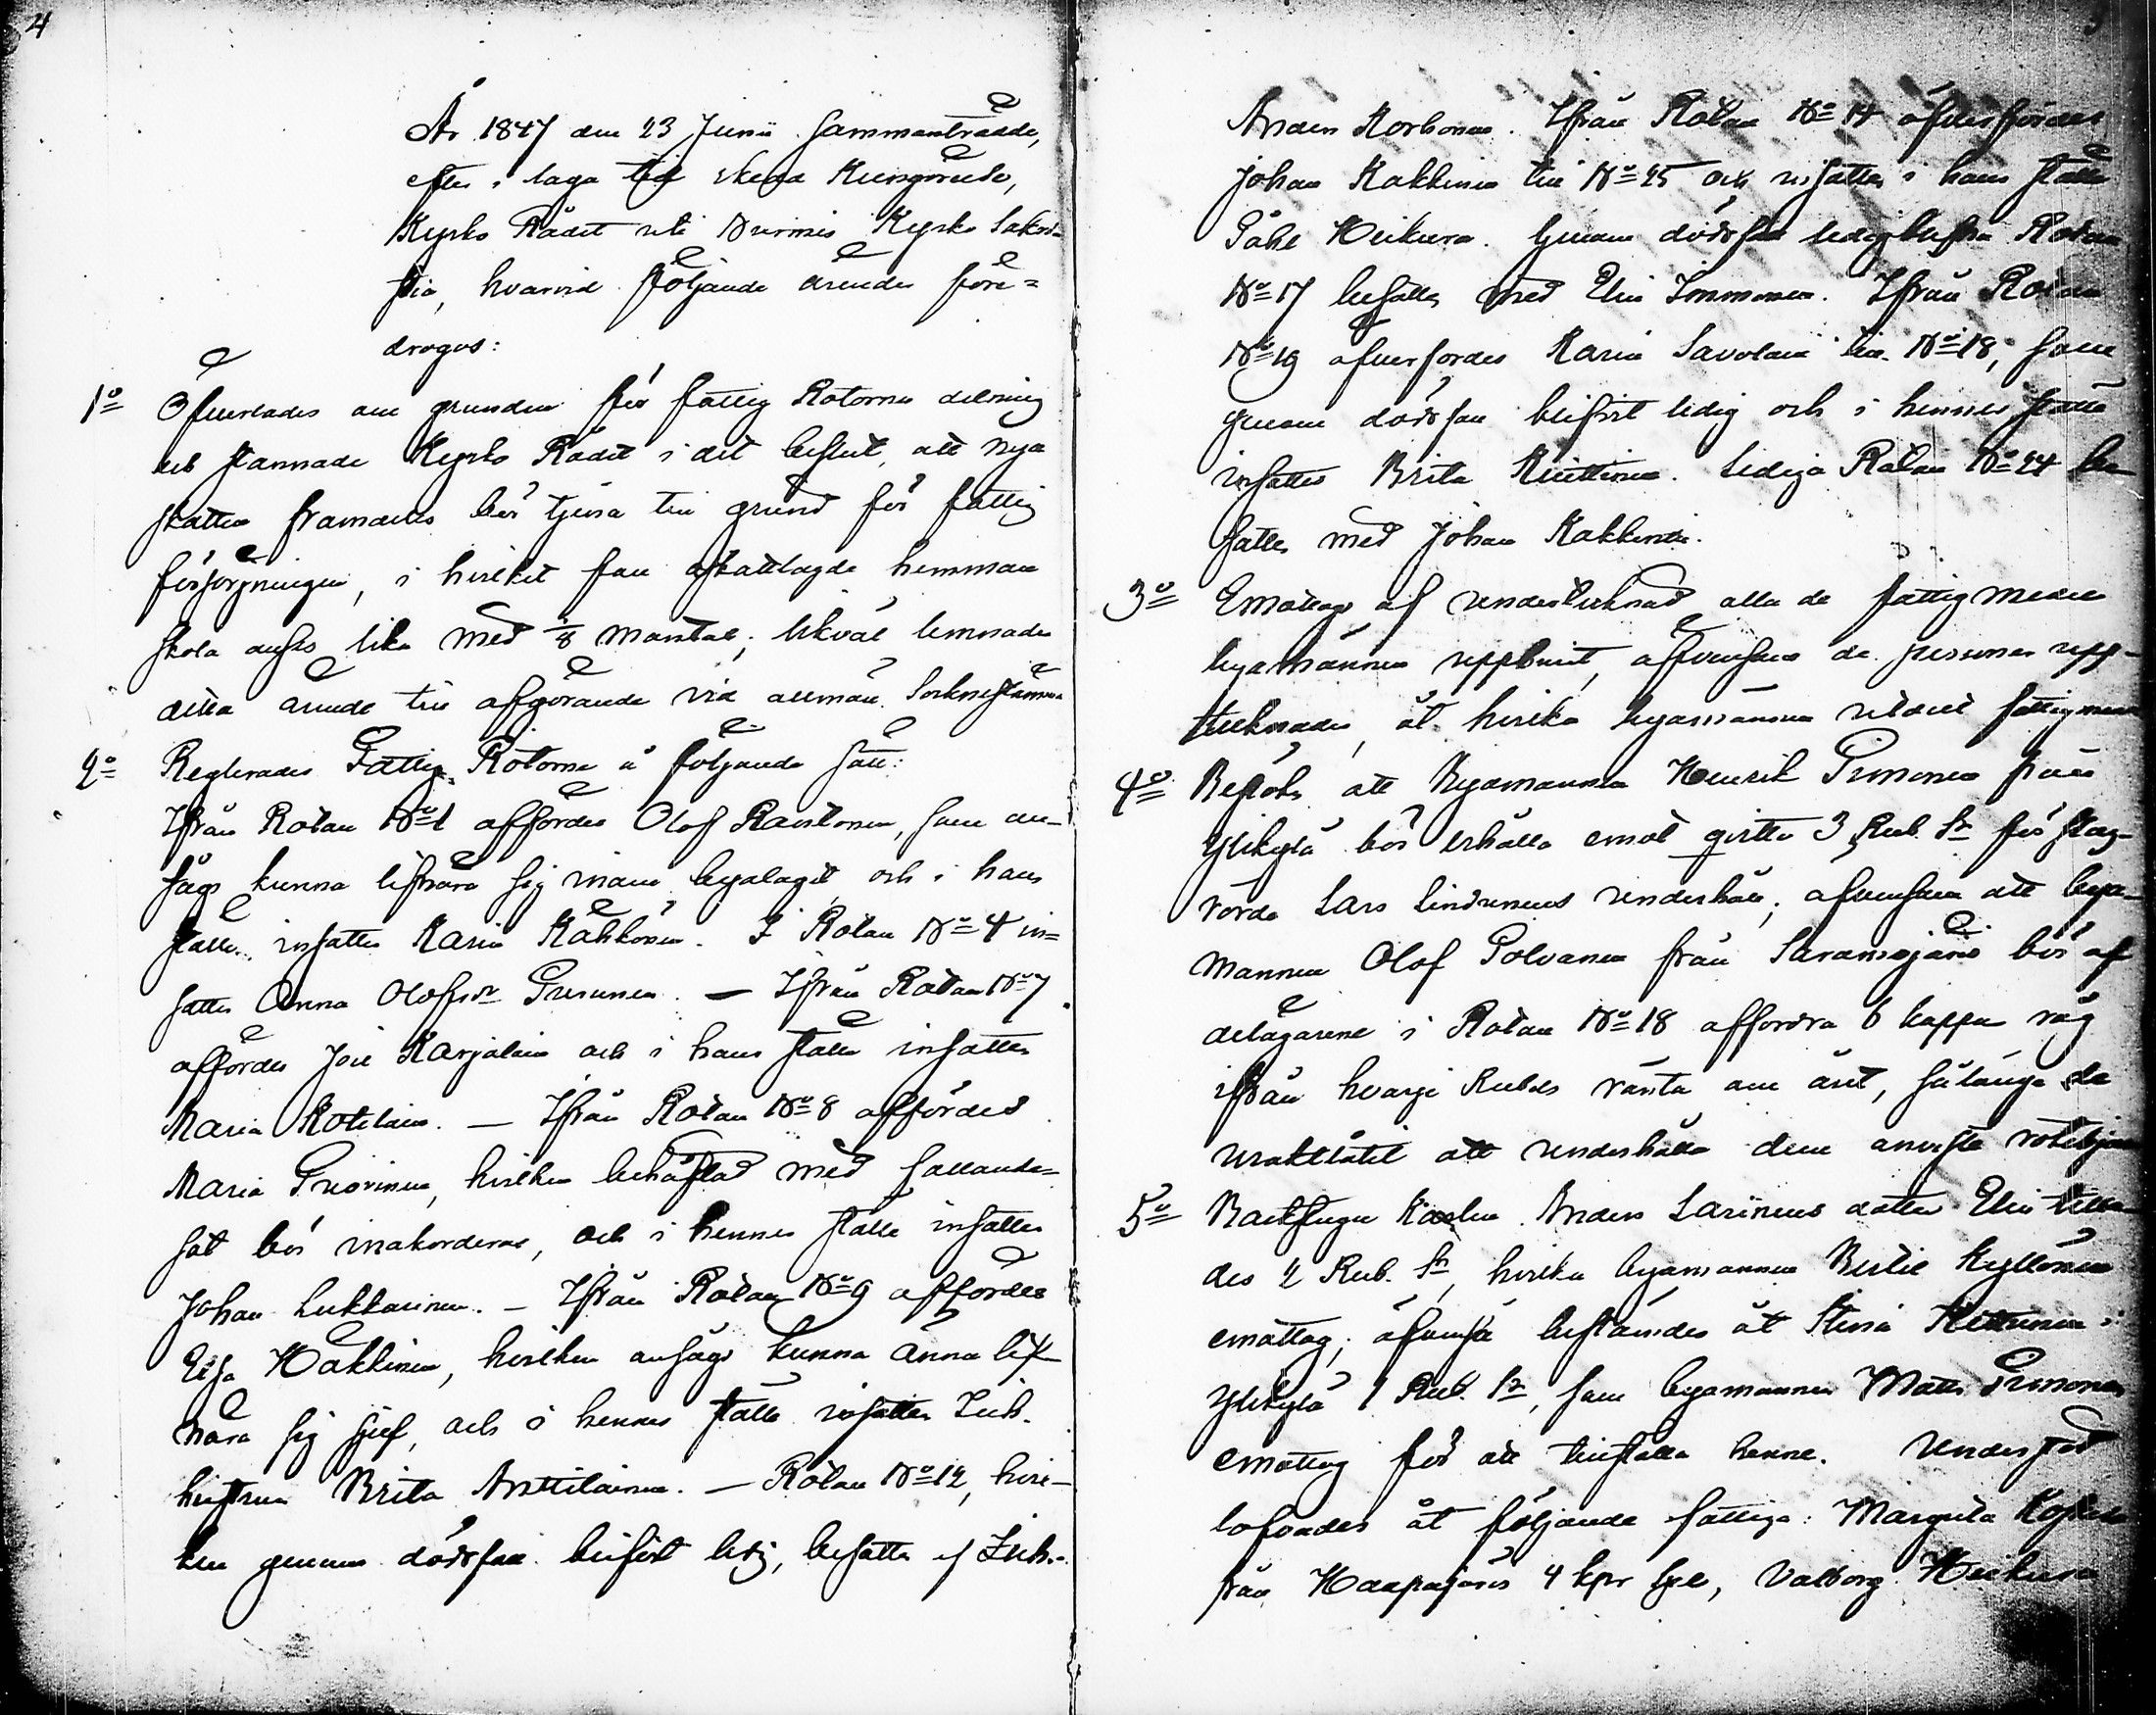 4
År 1847 den 23 Junii sammanträdde,
efter i laga tid skedd Kungörelse,
Kyrko Rådet uti Nurmis Kyrko Sakri-
stia, hvarvid följande ärender före=
drogos:
1º Öfverlades om grunden för fattig Rotornes delning
och stannade Kyrko Rådet i det beslut, att nya
skatten framdeles bör tjena till grund för fattig
försörjningen, i hvilket fall oskattlagde hemman
skola anses lika med 1/8 mantal; likväl lemnades
detta ärende till afgörande vid allmän Sockne stämma
2º Reglerades Fattig Rotorne å följande sätt:
Ifrån Rotan Nº 1 affördes Olof Rautonen, som an-
sågs kunna lifnära sig inom byalaget och i hans
ställe insattes Karin Kähkönen. I Rotan Nº 4 in=
sattes Anna Olofsdr Turunen. — Ifrån Rotan Nº 7
affördes Joel Karjalain och i hans ställe insattes
Maria Kotilain. — Ifrån Rotan Nº 8 affördes
Maria Tuovinen, hvilken behäftad med fallande=
sot bör inakorderas, och i hennes ställe insattes
Johan Lukkarinen. — Ifrån Rotan Nº 9 affördes
Elsa Hakkinen, hvilken ansågs kunna ännu lif-
nära sig sjelf, och i hennes ställe insattes Inh.
hustrun Brita Anttilainen. — Rotan Nº 12, hvil-
ken genom dödsfall blifvit ledig, besattes af Inh.
Anders Korhonen. Ifrån Rotan Nº 14 öfverfördes
Johan Kakkinen till Nº 25 och insattes i hans ställe
Påhl Heikura. Genom dödsfall ledigblefna Rotan
Nº 17 besattes med Elin Immonen. Ifrån Rotan
Nº 19 öfverfördes Karin Savolain till Nº 18, som
genom dödsfall blifvit ledig och i hennes ställe
insattes Brita Kiuttinen. Lediga Rotan Nº 24 be-
sattes med Johan Kakkinen.
3º Emottogs af undertecknad alla de fattig medel
byamännen uppburit, äfvensom de personer upp-
tecknades, åt hvilka byamännen utdelt fattigmedel
4º Beslöts att Byamannen Henrik Timonen från
Ylikylä bör erhålla emot qvitto 3 Rub. Sr för slag-
rörde Lars Lindrunens underhåll; äfvensom att bya-
mannen Olof Polvanen från Saramojärvi bör af
delägarene i Rotan Nº 18 affordra 6 kappar råg
ifrån hvarje Rubels ränta om året, sålänge de
uraktlåtit att underhålla dem anviste rotehjon
5º Anders Larinens dotter Elin tilla-
des 2 Rub. Sr, hvilka byamannen Bertil Kyllönen
emottog; äfvenså bestämdes åt Stina Kettunen i
Ylikylä 1 Rub. Sr, som byamannen Matts Timonen
emottog för att tillställa henne. Understöd
lofvades åt följande fattiga: Margreta
från Haapajärvi 4 kpr Sp, Valborg Heikura